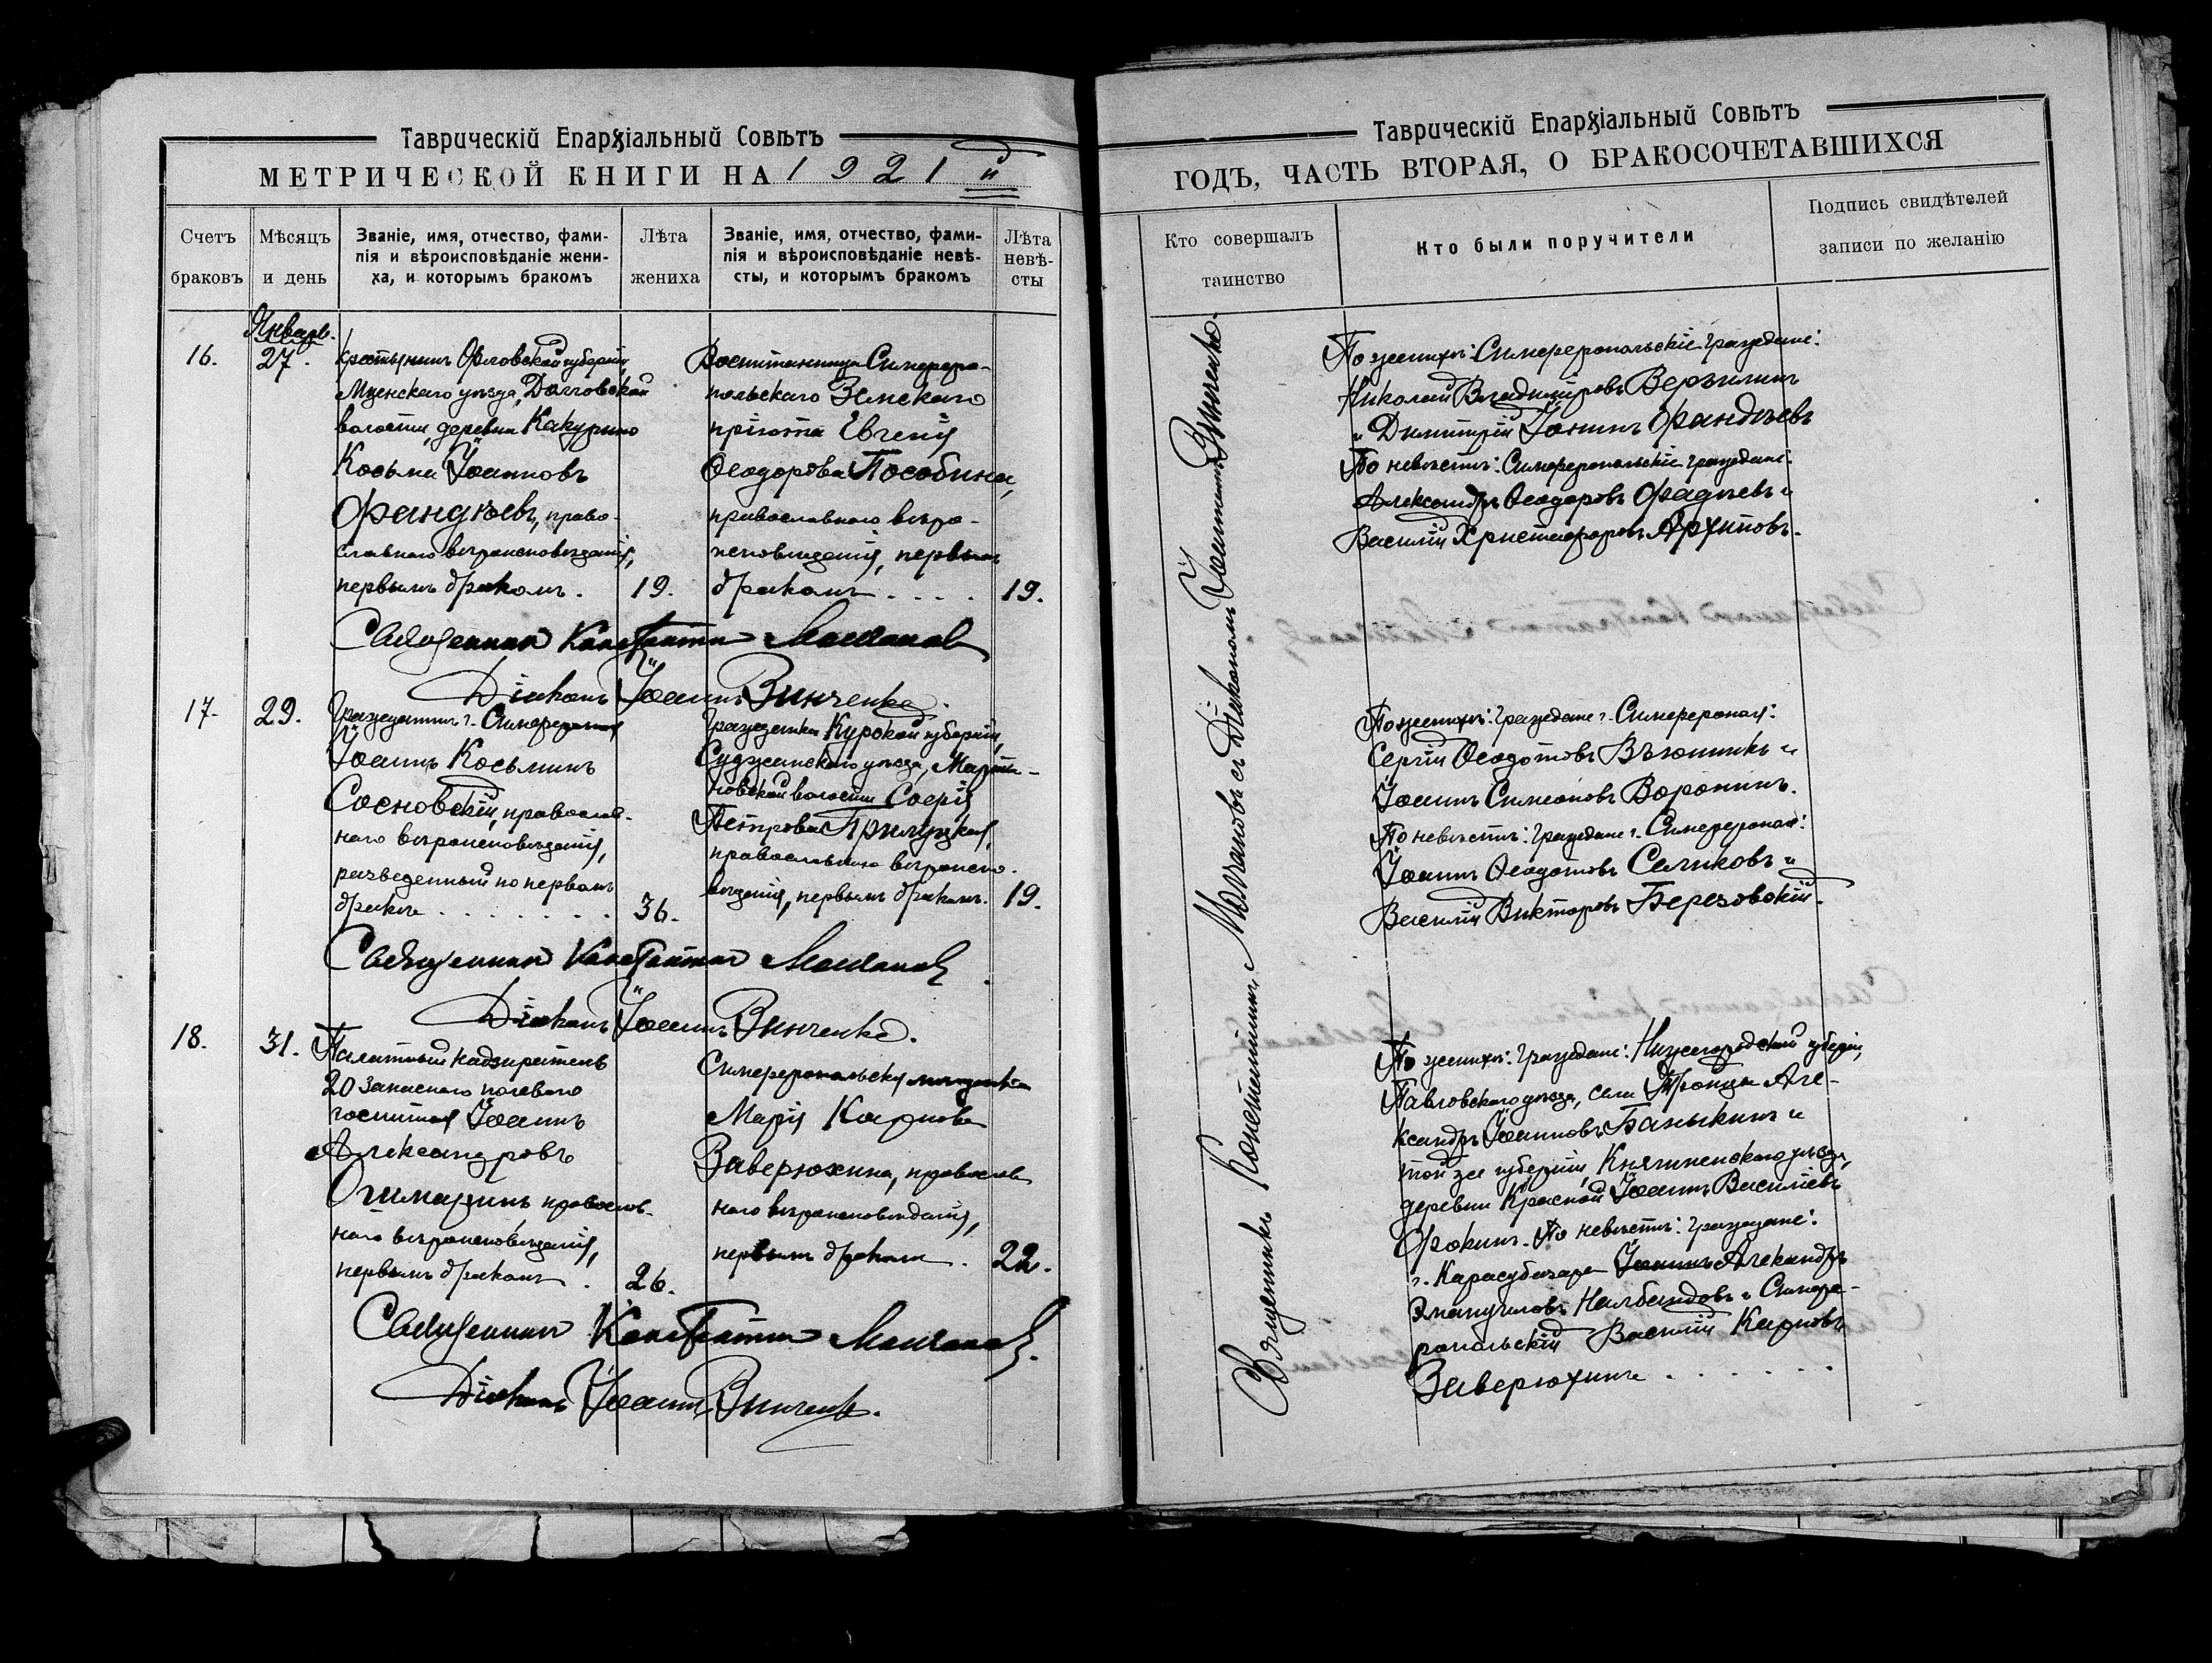 Таврическій Епархіальный Совѣтъ
МЕТРИЧЕСКОЙ КНИГИ НА 1921й
Счетъ браковъ
Мѣсяцъ и день
Званіе, имя, отчество, фами-
лія и вѣроисповѣданіе жени-
ха, и которымъ бракомъ
Лѣта жениха
Званіе, имя, отчество, фами-
лія и вѣроисповѣданіе невѣ-
сты, и которымъ бракомъ
Лѣта невѣ-
сты
Январь.
16.
27.
Крестьянинъ Орловской губерніи,
Мценскаго уѣзда, Долговской
волости, деревни Какурино
Косьма Іоанновъ
Фандѣевъ, право-
славнаго вѣроисповѣданія,
первымъ бракомъ.
19.
Воспитанница Симферо-
польскаго Земскаго
пріюта Евгенія
Ѳеодорова Пособина,
православнаго вѣро-
исповѣданія, первымъ
бракомъ . . . .
19.
Священникъ Константинъ Молчановъ
Діаконъ Іоаннъ Зинченко.
17.
29.
Гражданинъ г. Симферополя
Іоаннъ Косьминъ
Сосновскій, православ-
наго вѣроисповѣданія,
разведенный по первомъ
бракѣ . . . . . . .
36.
Гражданка Курской губерніи,
Суджанскаго уѣзда, Марти-
новской волости Софія
Петрова Прилуцкая,
православнаго вѣроиспо-
вѣданія, первымъ бракомъ.
19.
Священникъ Константинъ Молчановъ.
Діаконъ Іоаннъ Зинченко.
18.
31.
Палатный надзиратель
20 запаснаго полевого
госпиталя Іоаннъ
Александровъ
православ-
наго вѣроисповѣданія,
первымъ бракомъ .
26.
Симферопольская мѣщанка
Марія Карпова
Заверюхина, православ
наго вѣроисповѣданія,
первымъ бракомъ .
22.
Священникъ Константинъ Молчановъ.
Діаконъ Іоаннъ Зинченко.
Таврическій Епархіальный Совѣтъ
ГОДЪ, ЧАСТЬ ВТОРАЯ, О БРАКОСОЧЕТАВШИХСЯ
Кто совершалъ таинство
Кто были поручители
Подпись свидѣтелей
записи по желанію
Священникъ Константинъ Молчановъ съ Діакономъ Іоанномъ Зинченко.
По женихѣ: Симферопольскіе граждане:
Николай Владиміровъ Верзилинъ
и Димитрій Іонинъ Фандѣевъ
По невѣстѣ: Симферопольскіе граждане:
Александръ Ѳеодоровъ Фадѣевъ и
Василій Христофоровъ Архиповъ.
По женихѣ: граждане г. Симферополя:
Сергій Ѳеодотовъ Вьюникъ и
Іоаннъ Симеоновъ Воронинъ.
По невѣстѣ: граждане г. Симферополя:
Іоаннъ Ѳеодотовъ Саликовъ и
Василій Викторовъ Березовскій.
По женихѣ: граждане: Нижегородской губерніи,
Павловскаго уѣзда, села Троицы Але-
ксандръ Іоанновъ Баныкинъ и
той же губерніи, Княгининскаго уѣзда,
деревни Красной Іоаннъ Василіевъ
Фокинъ. По невѣстѣ: граждане:
г. Карасубазара Іоаннъ Александръ
Эмануиловъ Налбандовъ и Симфе-
ропольскій Василій Карповъ
Заверюхинъ . . . . . .